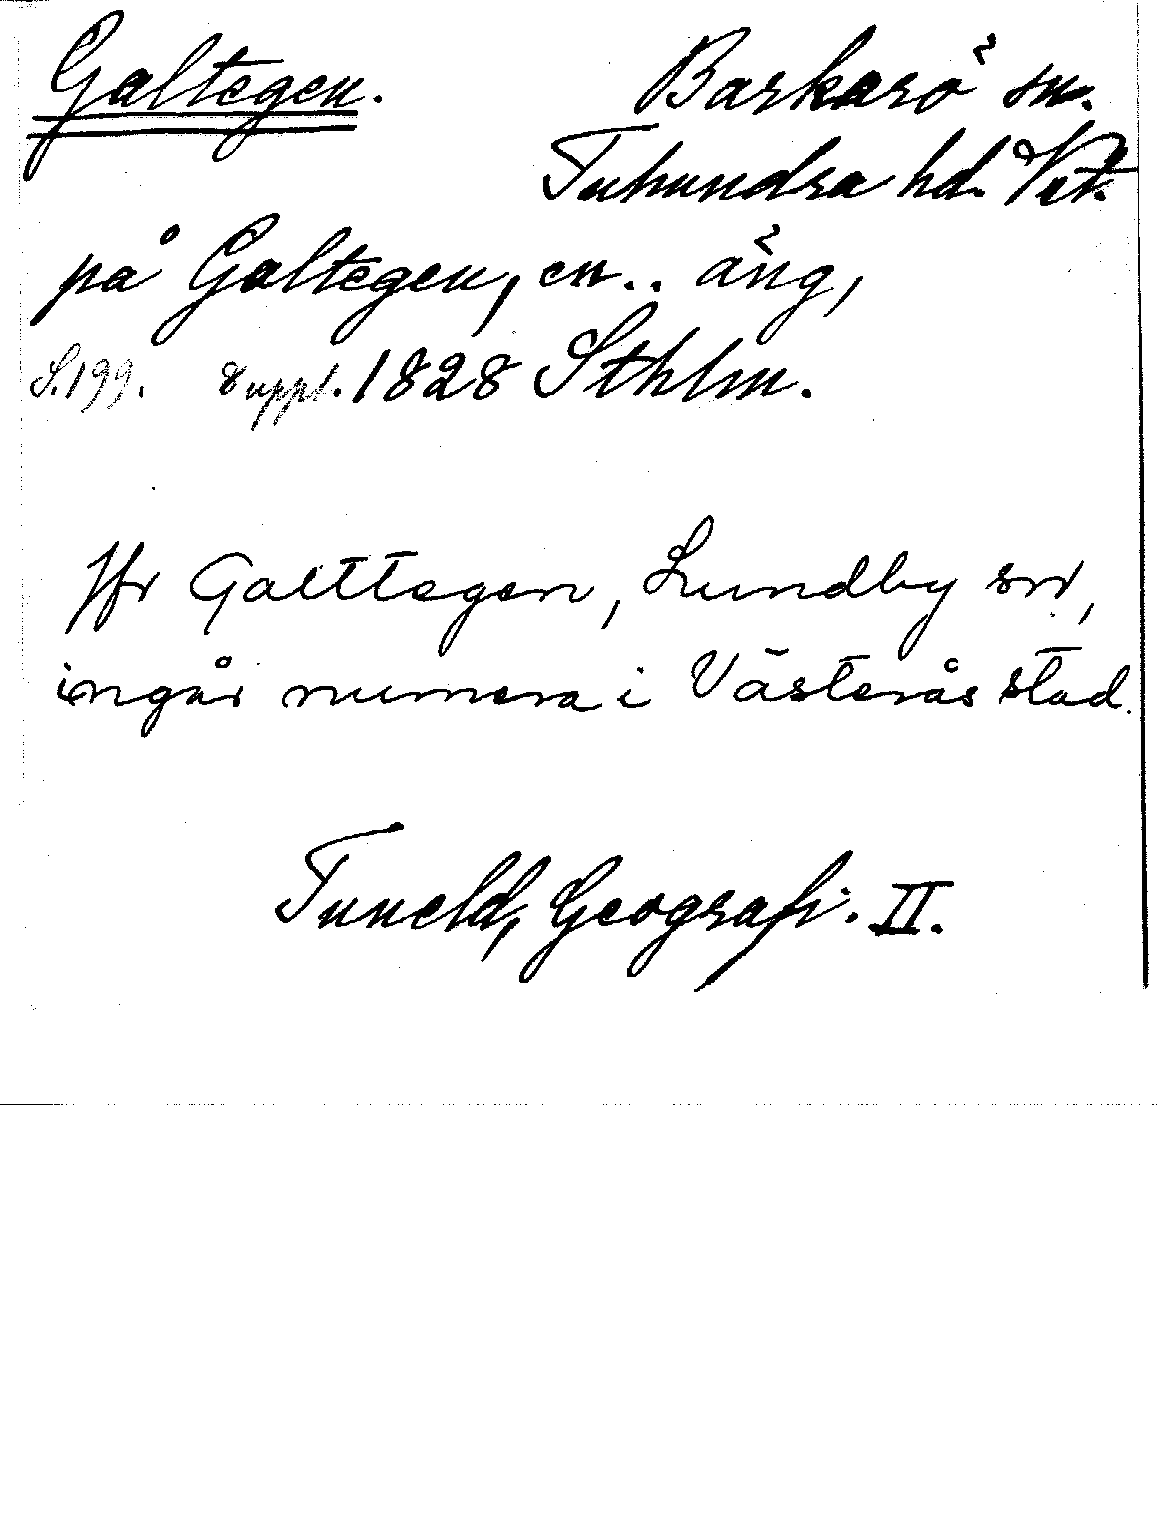 Galtegen. Barkarö sn.
Tuhundra hd. Vstm.
på Galtegen, en.. äng,
S.199. 8 uppl. 1828 Sthlm.
Jfr Galttegen, Lundby sn,
ingår numera i Västerås stad.
Tuneld, Geografi. II.